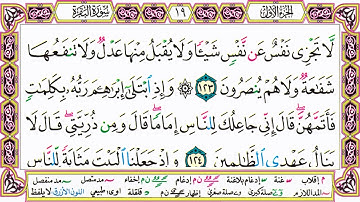 الجزء الأول ١٩ سورة البقرة
لَّا تَجْزِي نَفْسٌ عَن نَّفْسٍ شَيْـًٔا وَلَا يُقْبَلُ مِنْهَا عَدْلٌ وَلَا تَنفَعُهَا
شَفَـٰعَةٌ وَلَا هُمْ يُنصَرُونَ ١٢٣ ۞ وَإِذِ ابْتَلَىٰٓ إِبْرَٰهِـۧمَ رَبُّهُۥ بِكَلِمَـٰتٍ
فَأَتَمَّهُنَّ ۖ قَالَ إِنِّي جَاعِلُكَ لِلنَّاسِ إِمَامًا ۖ قَالَ وَمِن ذُرِّيَّتِي ۖ قَالَ لَا
يَنَالُ عَهْدِي الظَّـٰلِمِينَ ١٢٤ وَإِذْ جَعَلْنَا الْبَيْتَ مَثَابَةً لِّلنَّاسِ